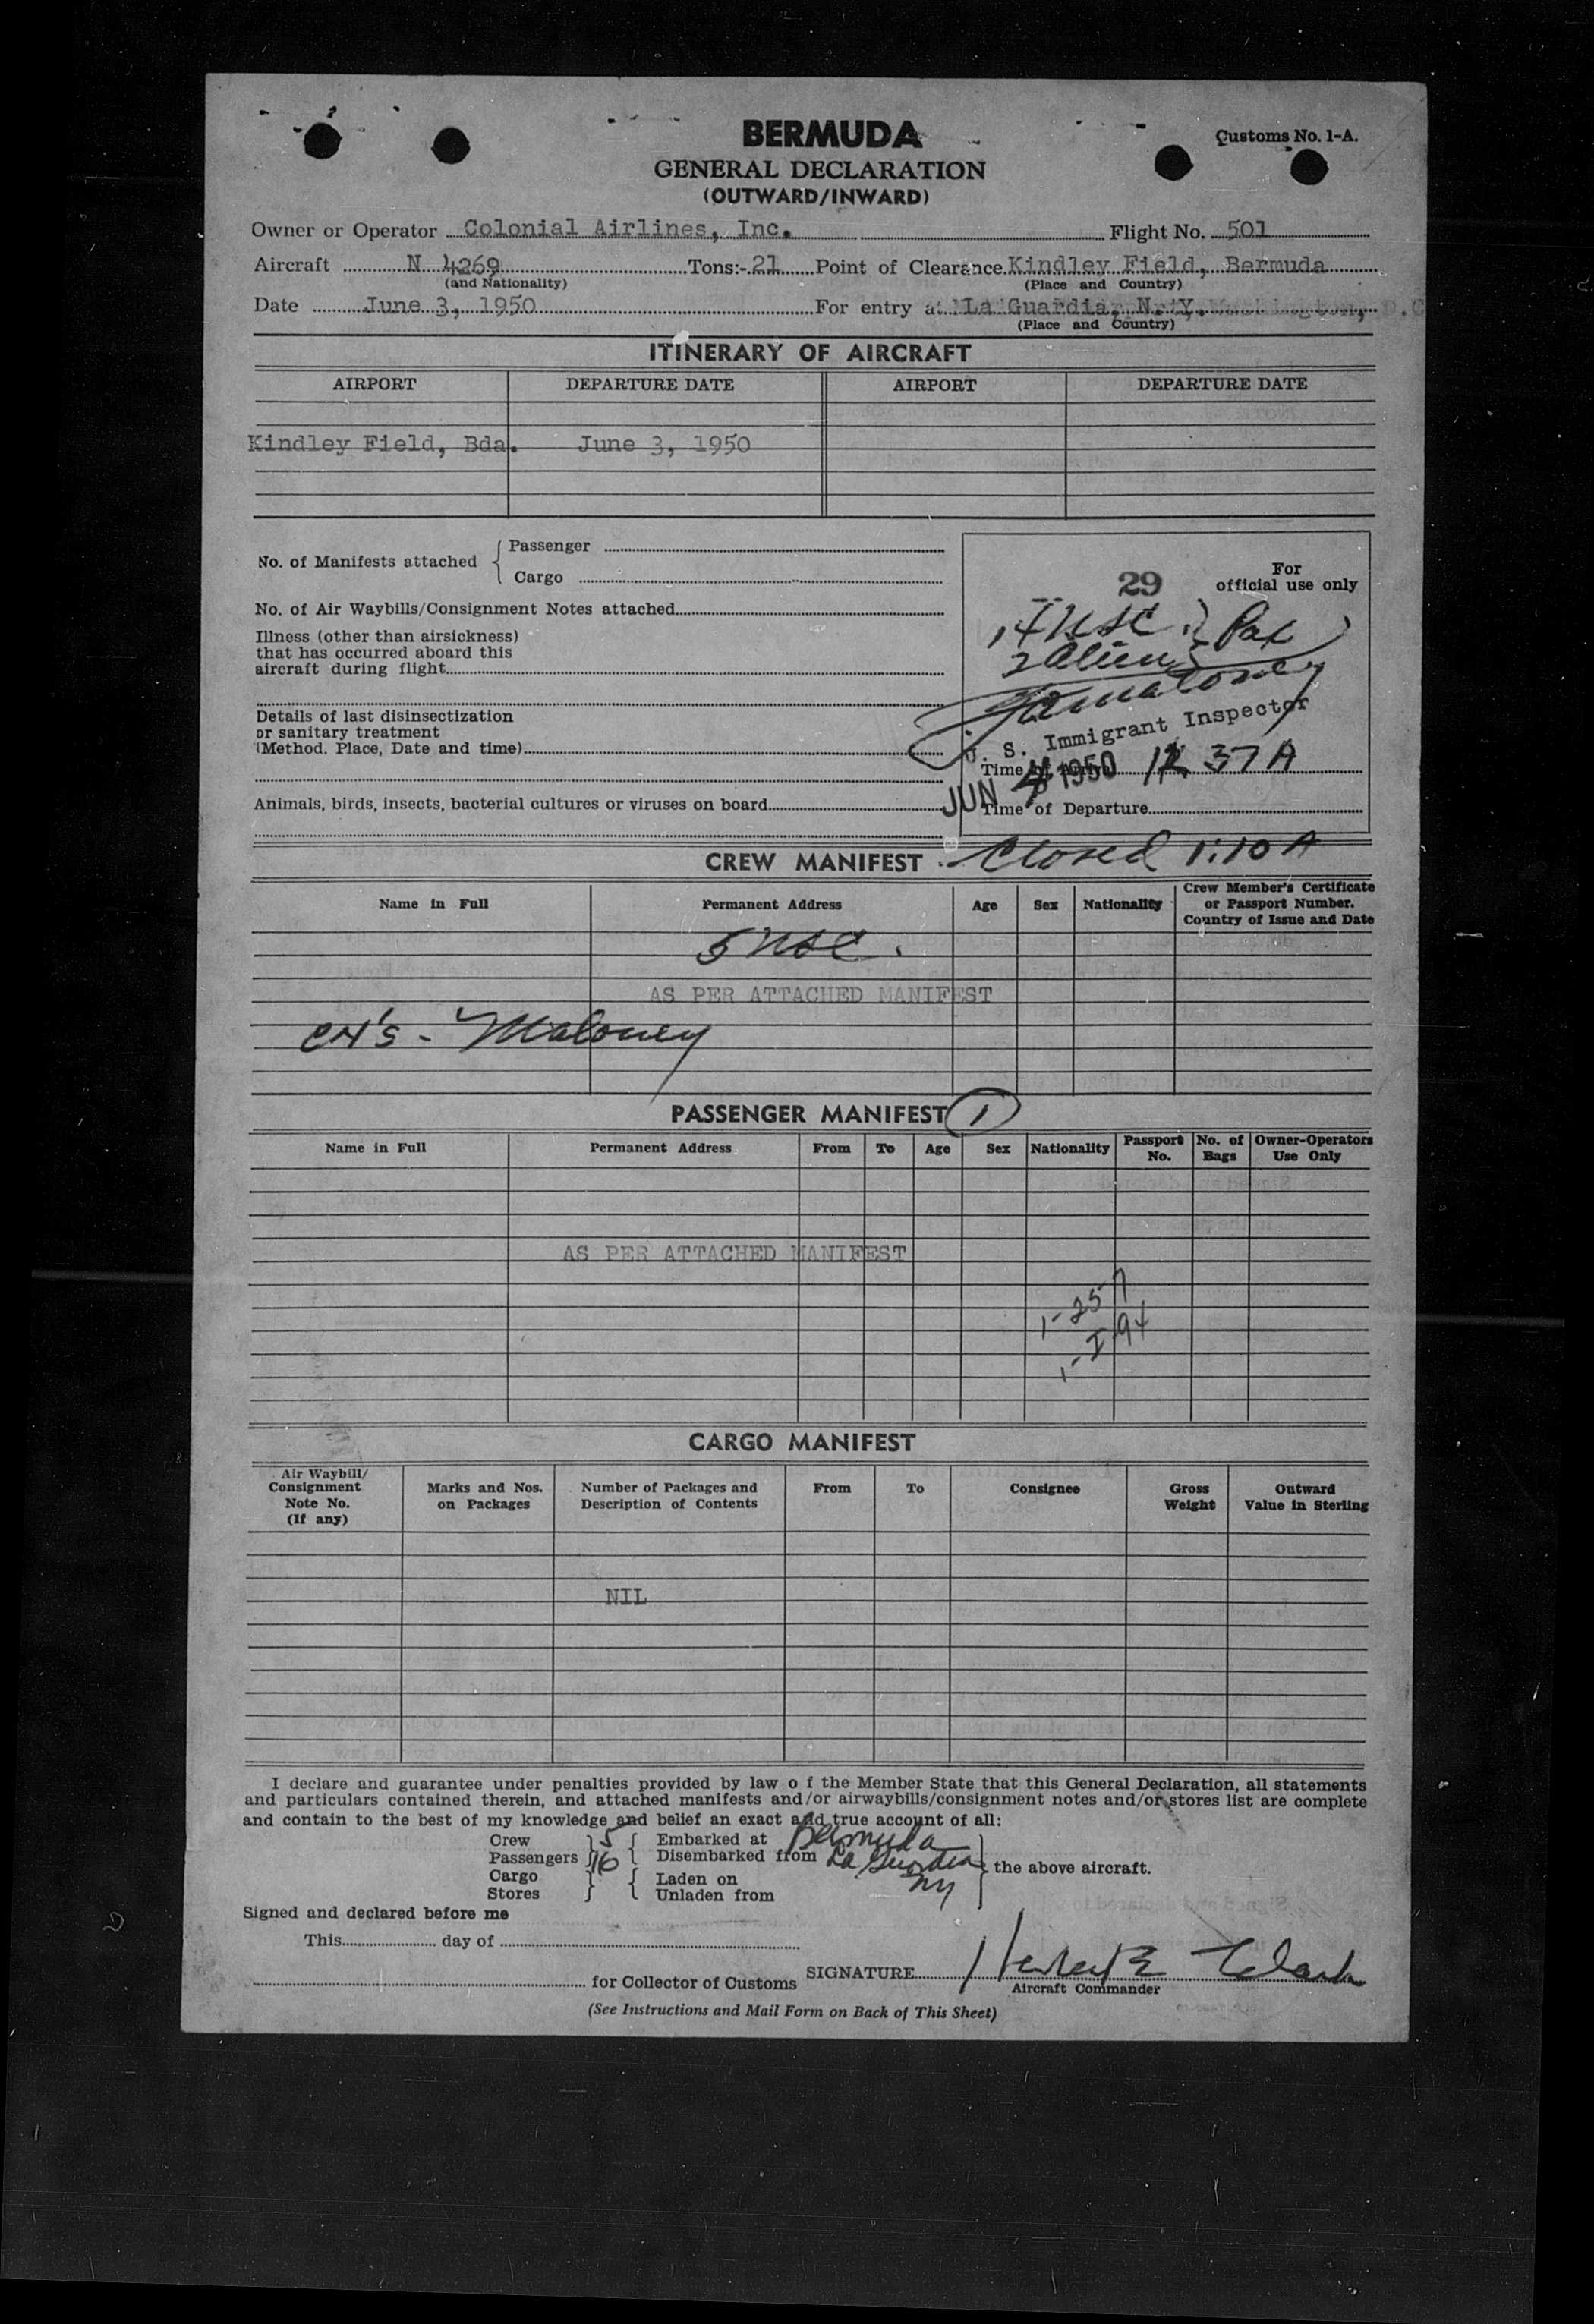 BERMUDA
Customs No. 1-A.
GENERAL DECLARATION
(OUTWARD/INWARD)
Owner or Operator Colonial Airlines, Inc. Flight No. 501
Aircraft N 4269 Tons:- 21 Point of Clearance Kindley Field, Bermuda
(and Nationality) (Place and Country)
Date June 3, 1950 For entry at La Guardia, N.Y.
(Place and Country)
ITINERARY OF AIRCRAFT
AIRPORT DEPARTURE DATE AIRPORT DEPARTURE DATE
Kindley Field, Bda. June 3, 1950
No. of Manifests attached { Passenger
Cargo
No. of Air Waybills/Consignment Notes attached
Illness (other than airsickness)
that has occurred aboard this
aircraft during flight
Details of last disinsectization
or sanitary treatment
(Method. Place, Date and time)
Animals, birds, insects, bacterial cultures or viruses on board
29
For
official use only
14 USC } Pax
2 Alien
Maloney
U. S. Immigrant Inspector
Time of Arrival 12 37 A
JUN 4 1950
Time of Departure
CREW MANIFEST Closed 1:10 A
Name in Full Permanent Address Age Sex Nationality Crew Member's Certificate
or Passport Number.
Country of Issue and Date
5 USC.
AS PER ATTACHED MANIFEST
Maloney
PASSENGER MANIFEST 1
Name in Full Permanent Address From To Age Sex Nationality Passport No. No. of Bags Owner-Operators Use Only
AS PER ATTACHED MANIFEST
1-257
1-I 94
CARGO MANIFEST
Air Waybill/
Consignment
Note No.
(If any) Marks and Nos.
on Packages Number of Packages and
Description of Contents From To Consignee Gross
Weight Outward
Value in Sterling
NIL
I declare and guarantee under penalties provided by law o f the Member State that this General Declaration, all statements
and particulars contained therein, and attached manifests and/or airwaybills/consignment notes and/or stores list are complete
and contain to the best of my knowledge and belief an exact and true account of all:
Crew 5 Embarked at Bermuda
Passengers 16 Disembarked from La Guardia the above aircraft.
Cargo Laden on NY
Stores Unladen from
Signed and declared before me
This day of
for Collector of Customs SIGNATURE Clark
Aircraft Commander
(See Instructions and Mail Form on Back of This Sheet)